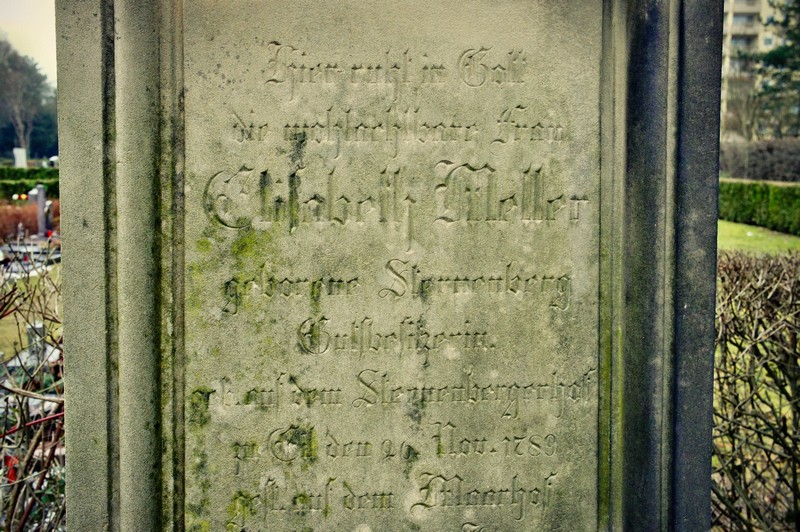 Hier ruht in Gott
die wohlachtbare Frau
Elisabeth Meller
geborene Sternenberg
Gutsbesitzerin.
geb. auf dem Sternenbergerhof
zu Eil den 26. Nov. 1783
gest. auf dem Maarhof